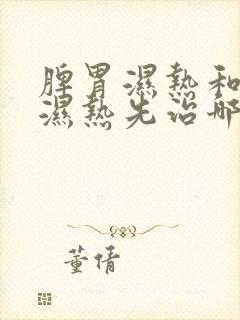 脾胃濕熱和
濕熱先治哪
董倩